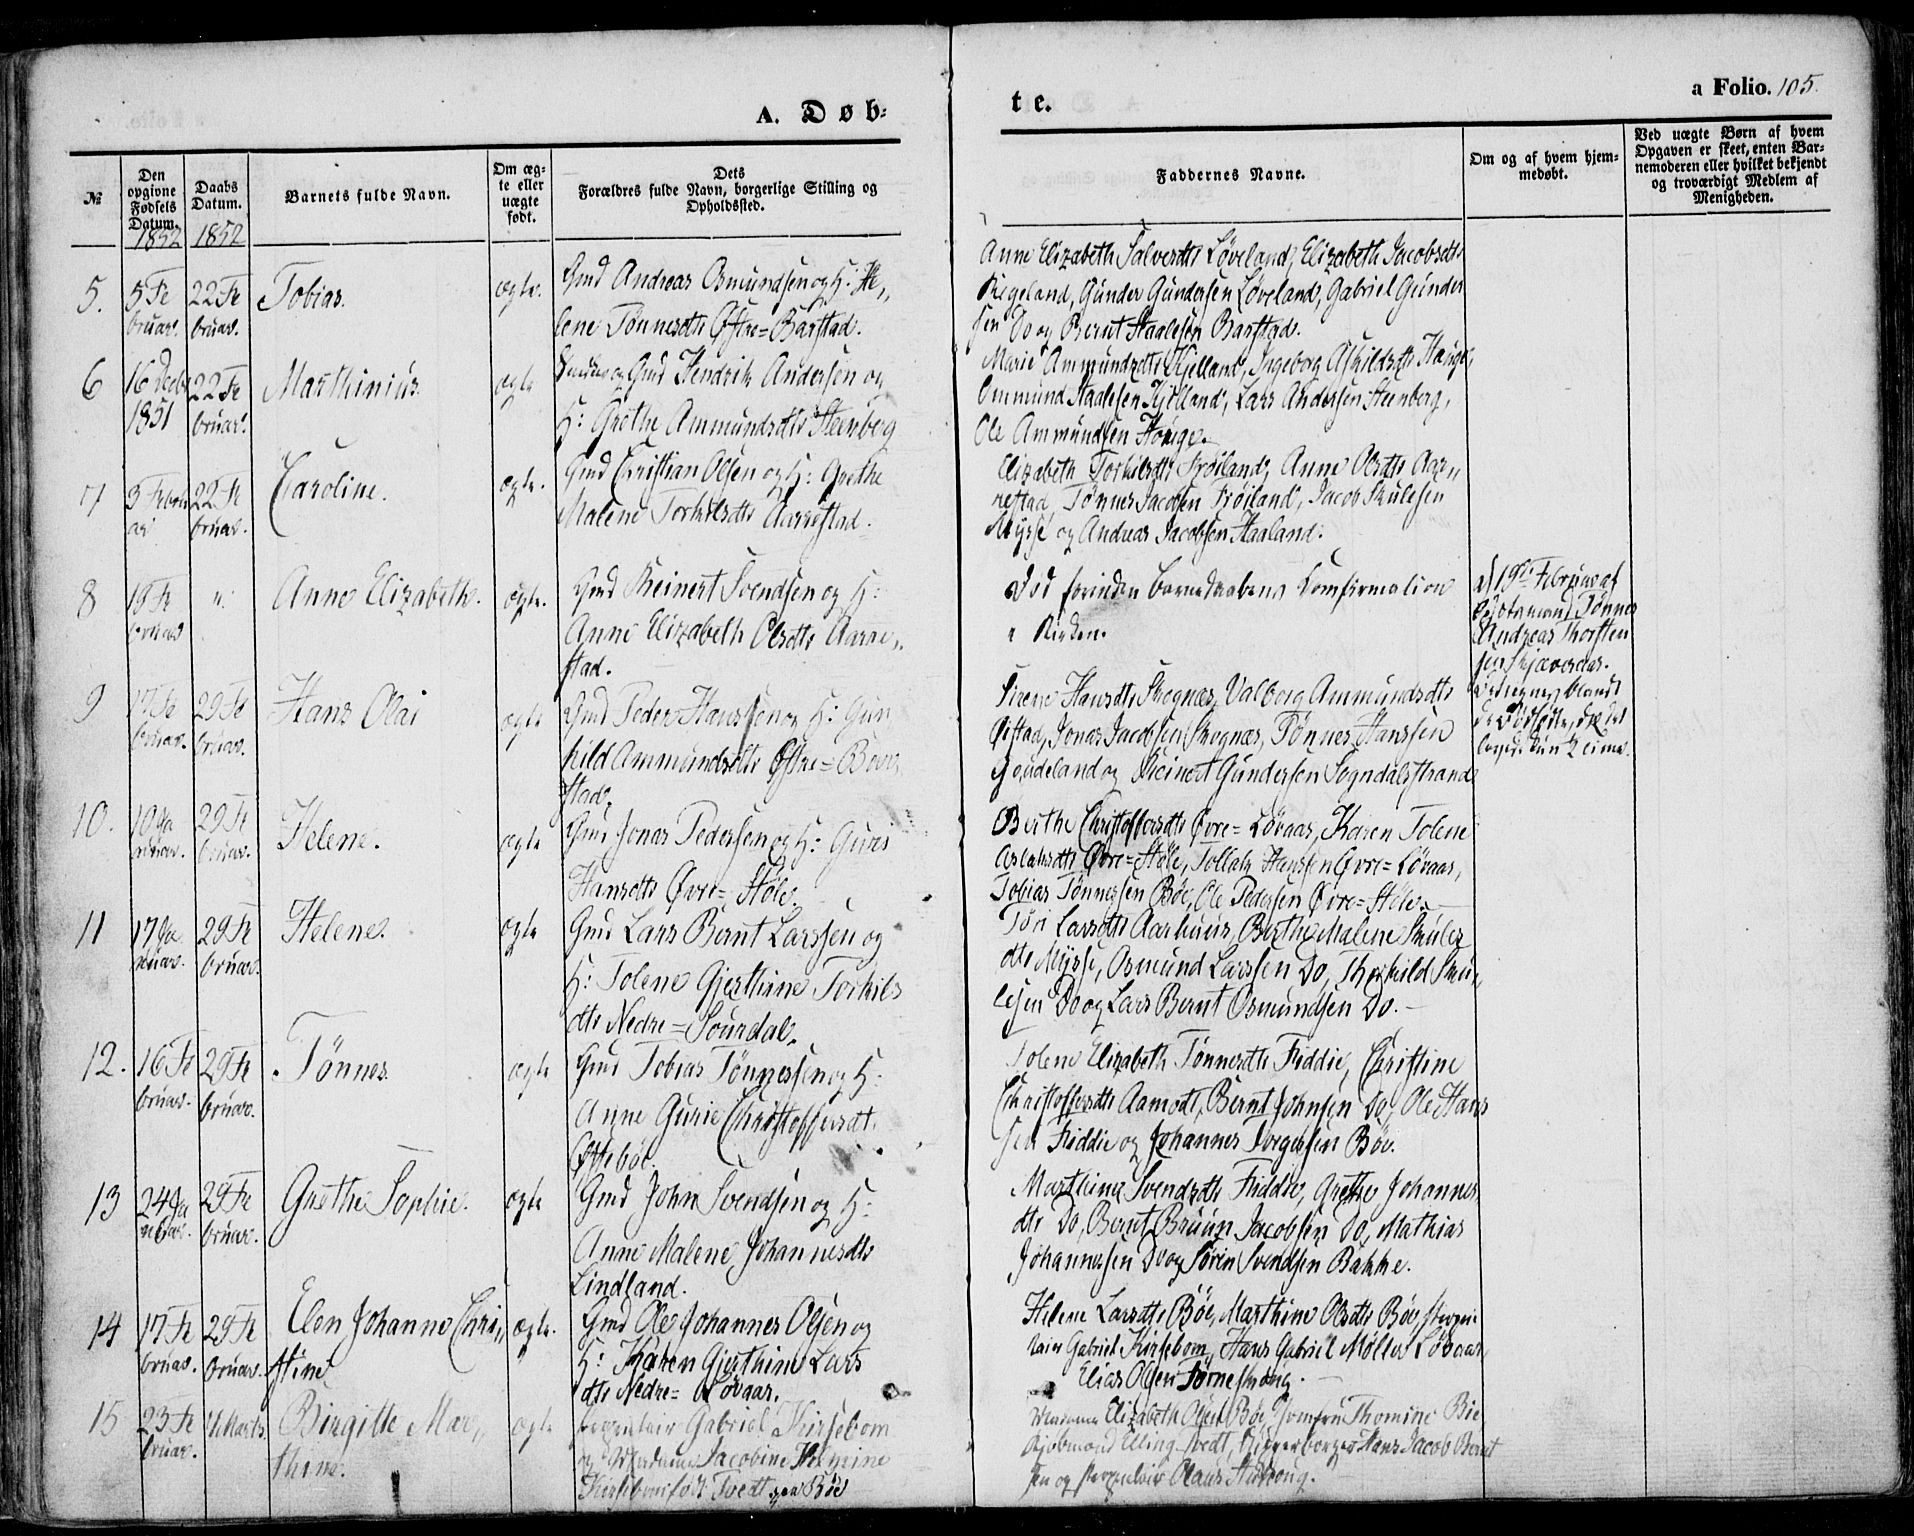 A. Døb-
te.
a Folio. 105.
№
Den opgivne Fødsels Datum.
Daabs Datum.
Barnets fulde Navn.
Om ægte eller uægte født.
Dets Forældres fulde Navn, borgerlige Stilling og Opholdssted.
Faddernes Navne.
Om og af hvem hjemmedøbt.
Ved uægte Børn af hvem Opgaven er skeet, enten Barnemoderen eller hvilket bekjendt og troværdigt Medlem af Menigheden.
1852 1852
5. 5 Fe 22 Fe Tobias. ægte. Gmd Andreas Osmundsen og H: He„
bruar. bruar. lene Tønnesdtr Østre=Barstad.
Anne Elizabeth Salvesdtr Løveland, Elizabeth Jacobsdtr
Regeland, Gunder Gundersen Løveland, Gabriel Gunder
sen Do og Bernt Staalesen Barstad.
6 16 Decbr 22 Fe Marthinius. ægte og Gmd Hendrik Andersen og
1851 bruar. H: Grethe Ammundsdtr Steenberg
Marie Ammundsdtr Kjelland, Ingeborg Askildsdtr Hauge,
Ommund Staalesen Kjelland, Lars Andersen Steenberg,
Ole Ammundsen Hauge.
7 3 Febru 22 Fe Caroline. ægte. Gmd Christian Olsen og H: Grethe
ar. bruar. Malene Torkildsdtr Aarrestad.
Elizabeth Torkildsdtr Frøiland, Anne Olsdtr Aar„
restad, Tønnes Jacobsen Frøiland, Jacob Skulesen
Mysse og Andreas Jacobsen Haaland.
8 18 Fe " Anne Elizabeth. ægte. Gmd Reinert Svendsen og H:
bruar Anne Elizabeth Olsdtr Aarre„
stad.
Død forinden Barnedaabens Confirmation
i Kirken.
d 19de Februar af
Tønnes
Andreas Thorsten
sen Skjæveraas.
blandt
9 17 Fe 29 Fe Hans Olai ægte Gmd Peder Hanssen og H: Gun
bruar. bruar. hild Ammundsdtr Østre=Bow
stad.
Sirene Hansdtr Skognæs, Valborg Ammundsdtr
Øistad, Jonas Jacobsen Skognæs, Tønnes Hanssen
og Reinert Gundersen Sogndalsstrand
10. 10 Ja 29 Fe Helene. ægte Gmd Jonas Pedersen og H: Gurie
nuar. bruar. Hansdtr Øvre=Støle.
Berthe Christoffersdtr Øvre=Løvaas, Karen Tolene
Aslaksdtr Øvre=Støle, Tollak Hanssen Øvre=Løvaas,
Tobias Tønnessen Bøe, Ole Pedersen Øvre=Støle.
11 17 Ja 29 Fe Helene. ægte Gmd Lars Bernt Larssen og
nuar. bruar. H: Tolene Gjerthine Torkils
dtr Nedre=Sourdal.
Tøri Larsdtr Aarhuus, Berthe Malene Skules
dtr Mysse, Osmund Larssen Do, Thorkild Sku„
lesen Do og Lars Bernt Osmundsen Do.
12. 16 Fe 29 Fe Tønnes. ægte Gmd Tobias Tønnessen og H:
bruar. bruar. Anne Gurie Christoffersdt.
Østebøe.
Tolene Elizabeth Tønnesdtr Fiddie, Christine
Christoffersdtr Aamodt, Bernt Johnsen Do, Ole Hans
sen Fiddie og Johannes Torgersen Bøe.
13 24 Ja 29 Fe Grethe Sophie. ægte Gmd John Svendsen og H:
nuar. bruar. Anne Malene Johannesdtr
Lindland.
Marthine Svendsdtr Fiddie, Grethe Johannes
dtr Do, Bernt Bruun Jacobsen Do, Mathias
Johannessen Do og Søren Svendsen Bakke.
14 17 Fe 29 Fe Elen Johanne Chri„ ægte. Gmd Ole Johannes Olsen og
bruar. bruar. stine H: Karen Gjerthine Lars
dtr Nedre=Løvaas.
Helene Larsdtr Bøe, Marthine Olsdtr Bøe,
Gabriel Kirsebom, Hans Gabriel Møller Løvaas,
Elias Olsen
15 23 Fe 4 Marts. Birgitte Mar„ ægte Gabriel Kirsebom
bruar. thine. og Jacobine Thomine
Kirsebom født Tvedt paa Bøe
Madame Elizabeth Olsen Bøe, Jomfru Thomine Bie
Kjøbmand Elling Tvedt, Hans Jacob Bernt
sen og Olaus